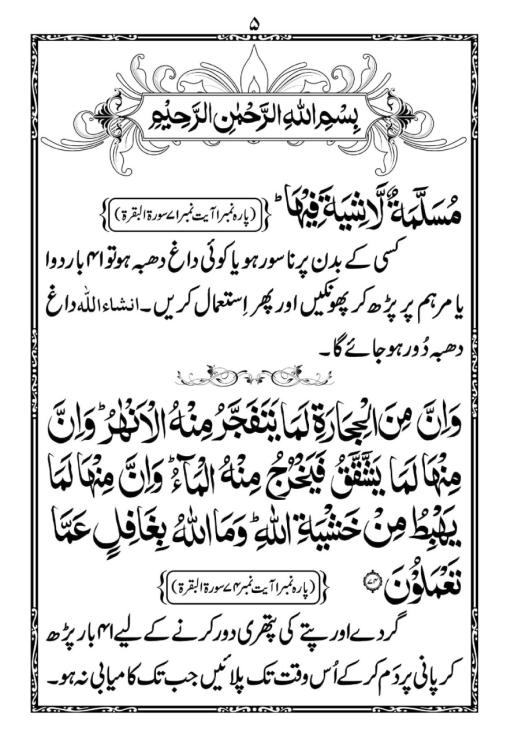 ۵
بِسْمِ اللهِ الرَّحْمٰنِ الرَّحِيْمِ
مُسَلَّمَةٌ لَّا شِيَةَ فِيْهَا ؕ (پارہ نمبر ۱ آیت نمبر ۷۱ سورۃ البقرۃ)
کسی کے بدن پر ناسور ہو یا کوئی داغ دھبہ ہو تو ۴۱ بار دوا
یا مرہم پر پڑھ کر پھونکیں اور پھر اِستعمال کریں۔ انشاء اللہ داغ
دھبہ دُور ہو جائے گا۔
وَاِنَّ مِنَ الْحِجَارَةِ لَمَا يَتَفَجَّرُ مِنْهُ الْاَنْهٰرُ ؕ وَاِنَّ
مِنْهَا لَمَا يَشَّقَّقُ فَيَخْرُجُ مِنْهُ الْمَآءُ ؕ وَاِنَّ مِنْهَا لَمَا
يَهْبِطُ مِنْ خَشْيَةِ اللهِ ؕ وَمَا اللهُ بِغَافِلٍ عَمَّا
تَعْمَلُوْنَ ﴿۷۴﴾ (پارہ نمبر ۱ آیت نمبر ۷۴ سورۃ البقرۃ)
گردے اور پتے کی پتھری دور کرنے کے لیے ۴۱ بار پڑھ
کر پانی پر دَم کر کے اُس وقت تک پلائیں جب تک کامیابی نہ ہو۔